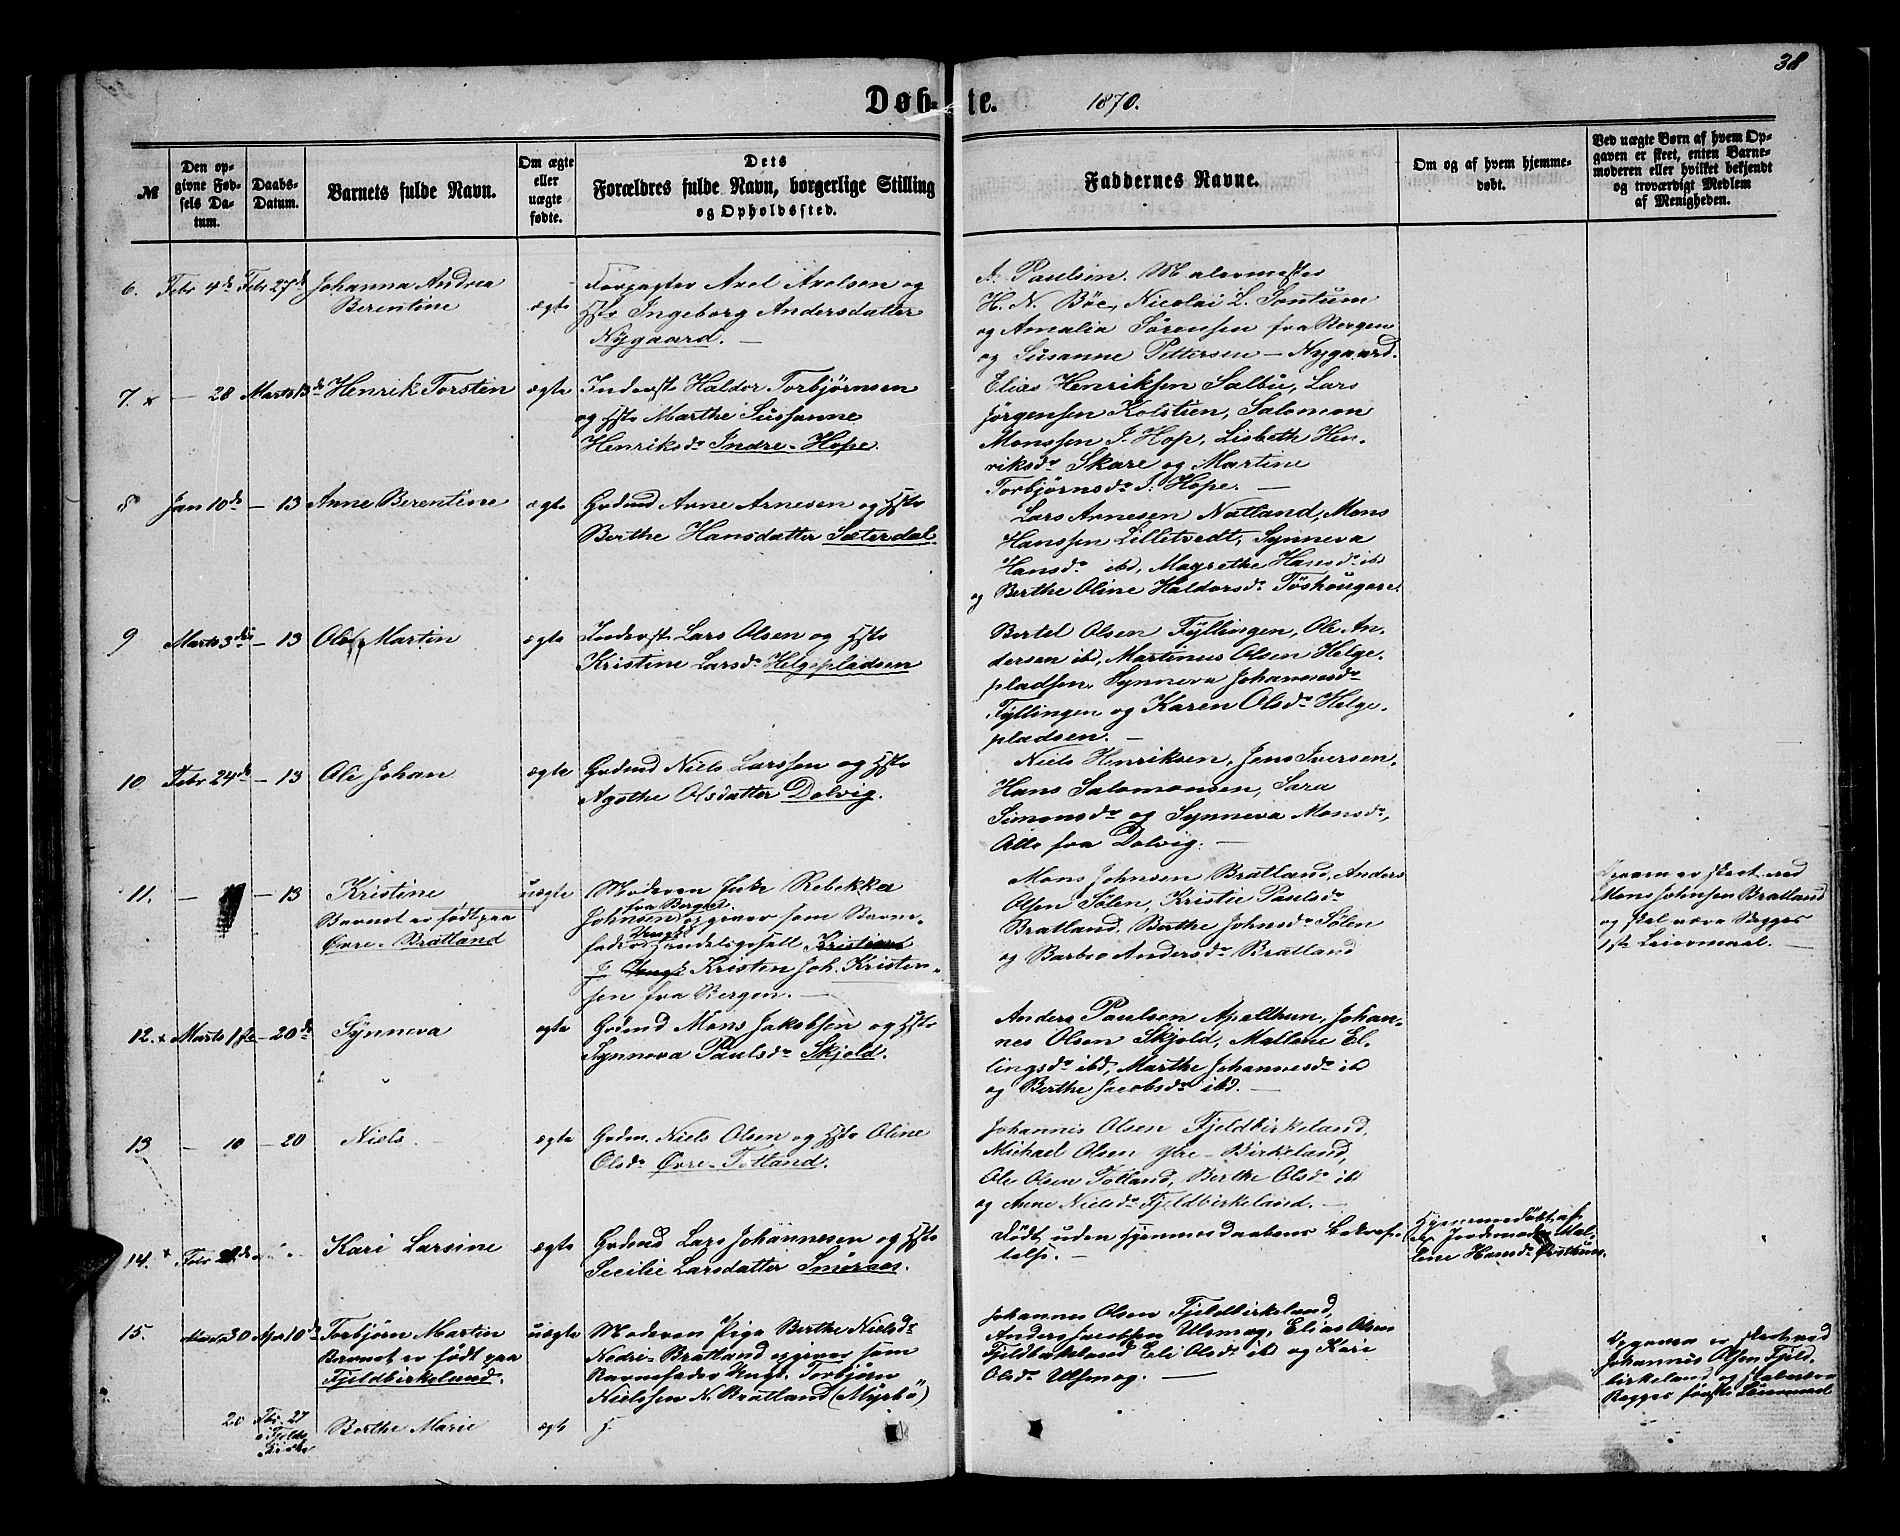 38
Døb-te. 1870.
№
Den op-
givne Føb-
sels Da-
tum.
Daabs-
Datum.
Barnets fulde Navn.
Om ægte
eller
uægte
fødte.
Dets
Forældres fulde Navn, borgerlige Stilling
og Opholdssted.
Faddernes Navne.
Om og af hvem hjemme-
døbt.
Ved uægte Børn af hvem Op-
gaven er skeet, enten Barne-
moderen eller hvilket bekjendt
og troværdigt Medlem
af Menigheden.
6. Febr 4de Febr 27de Johanna Andrea
Berentine
ægte
Forpagter Axel Axelsen og
Hstr Ingeborg Andersdatter
Nygaard. —
A. Paulsen. Malermester
H. N. Böe, Nicolai L. Sontum
og Amalia Sörensen fra Bergen
og Susanne Pettersen – Nygaard.
7. x — 28 Marts 13de Henrik Torsten
ægte
Inderst Haldor Torbjørnsen
og Hstr Marthe Sussanne
Henriksdr Indre-Hope.
Elias Henriksen Salbu, Lars
Jörgensen Kolstien, Salomon
Monssen I. Hop, Lisbeth Hen-
riksdr Skare og Martine
Torbjörnsdr I. Hope. —
8 Jan 10de — 13 Anne Berentine
ægte
Grdmd Arne Arnesen og Hstr
Berthe Hansdatter Sæterdal.
Lars Arnesen Natland, Mons
Hanssen Lilletvedt, Synneva
Hansdr ibd, Magrethe Hansdr ibd
og Berthe Oline Haldorsdr
9 Marts 3die — 13 Ole Martin
ægte
Inderst Lars Olsen og Hstr
Kristine Larsdr Helgepladsen
Bertel Olsen Fyllingen, Ole An-
dersen ibd, Martinus Olsen Helge-
pladsen, Synneva Johannesdr
Fyllingen og Karen Olsdr Helge-
pladsen. —
10. Febr 24de — 13 Ole Johan
ægte
Grdmd Niels Larssen og Hstr
Agathe Olsdatter Dolvig.
Niels Henriksen, Jens Iversen,
Hans Salomonsen, Sara
Simonsdr og Synneva Monsdr,
Alle fra Dolvig. —
11. — — 13 Kristine
Barnet er født paa
Øvre-Bratland
uægte
Moderen Rebekka
fra Bergen.
Johnsen opgaver som Barne-
fader
Kristen Joh. Kristen-
sen fra Bergen. —
Mons Johnsen Bratland, Anders
Olsen Sölen, Kristie Paulsdr
Bratland, Berthe Johnsdr Sölen
og Barbro Andersdr Bratland
Opgaven er skeet ved
Mons Johnsen Bratland
og skal være Begges
1ste Leiermaal. —
12. x Marts 1ste — 20de Synneva
ægte
Grdmd Mons Jakobsen og Hstr
Synneva Paulsdr Skjold.
Anders Paulsen Apelthun, Johan-
nes Olsen Skjold, Mallene El-
lingsdr ibd, Marthe Johannesdr ibd
og Berthe Jacobsdr ibd. —
13 — 10 — 20 Niels.
ægte
Grdm. Niels Olsen og Hstr Oline
Olsdr Øvre-Totland.
Johannes Olsen Fjeldbirkeland,
Michael Olsen Ytre-Birkeland,
Ole Olsen Totland, Berthe Olsdr ibd
og Anne Nielsdr Fjeldbirkeland. —
14. x Febr Kari Larsine
ægte
Grdmd Lars Johannesen og Hstr
Secilie Larsdatter Smøraas.
Födt uden Hjemmedaabens bekræf-
telse.
Hjemmedøbt af
Jordemoder Mal-
lene Hansdr
15. Marts 30 Apr 10de Torbjørn Martin
Barnet er født paa
Fjeldbirkeland.
uægte
Moderen Pige Berthe Nielsdr
Nedre-Bratland opgaver som
Barnefader Ungk. Torbjørn
Nielssen N. Bratland (Myrbö)
Johannes Olsen Fjeldbirkeland,
Anders Jacobsen Ulsmag, Elias Olsen
Fjeldbirkeland Eli Olsdr ibd og Kari
Olsdr Ulsmag. —
Opgaven er skeet ved
Johannes Olsen Fjeld-
birkeland og skal være
Begges første Leiermaal
20 Febr. 27
i Fjelds
Kirke
Berthe Marie
ægte